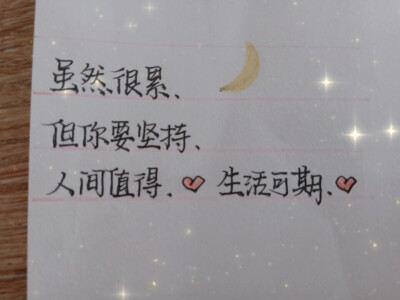 虽然很累、
但你要坚持、
人间值得、生活可期、